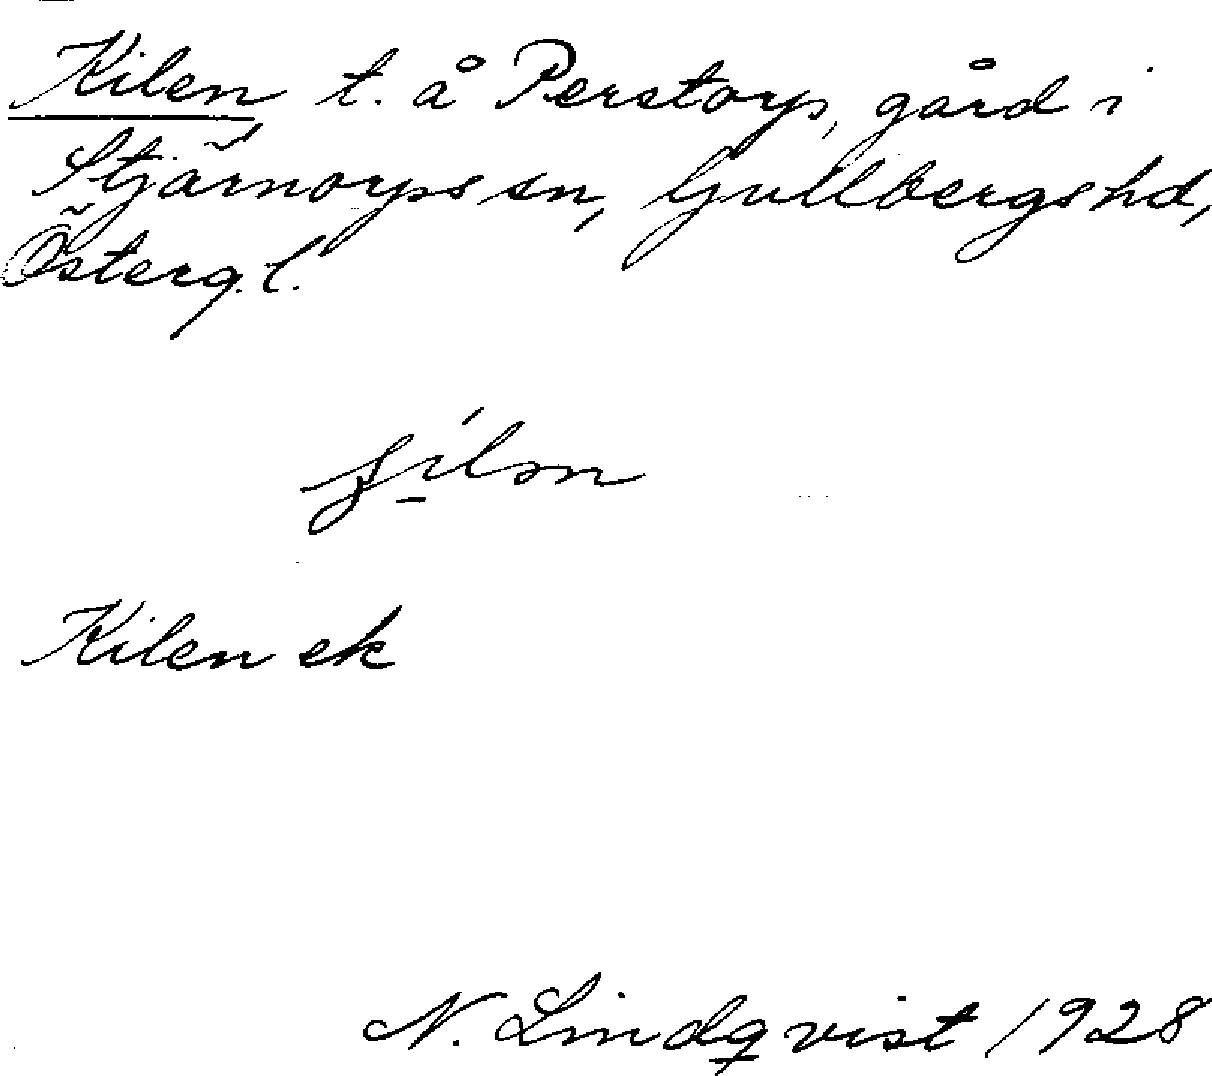 Kilen t. å Perstorp, gård i
Stjärnorps sn, Gullbergs hd,
Österg. l.
Kilen ek
N. Lindqvist 1928